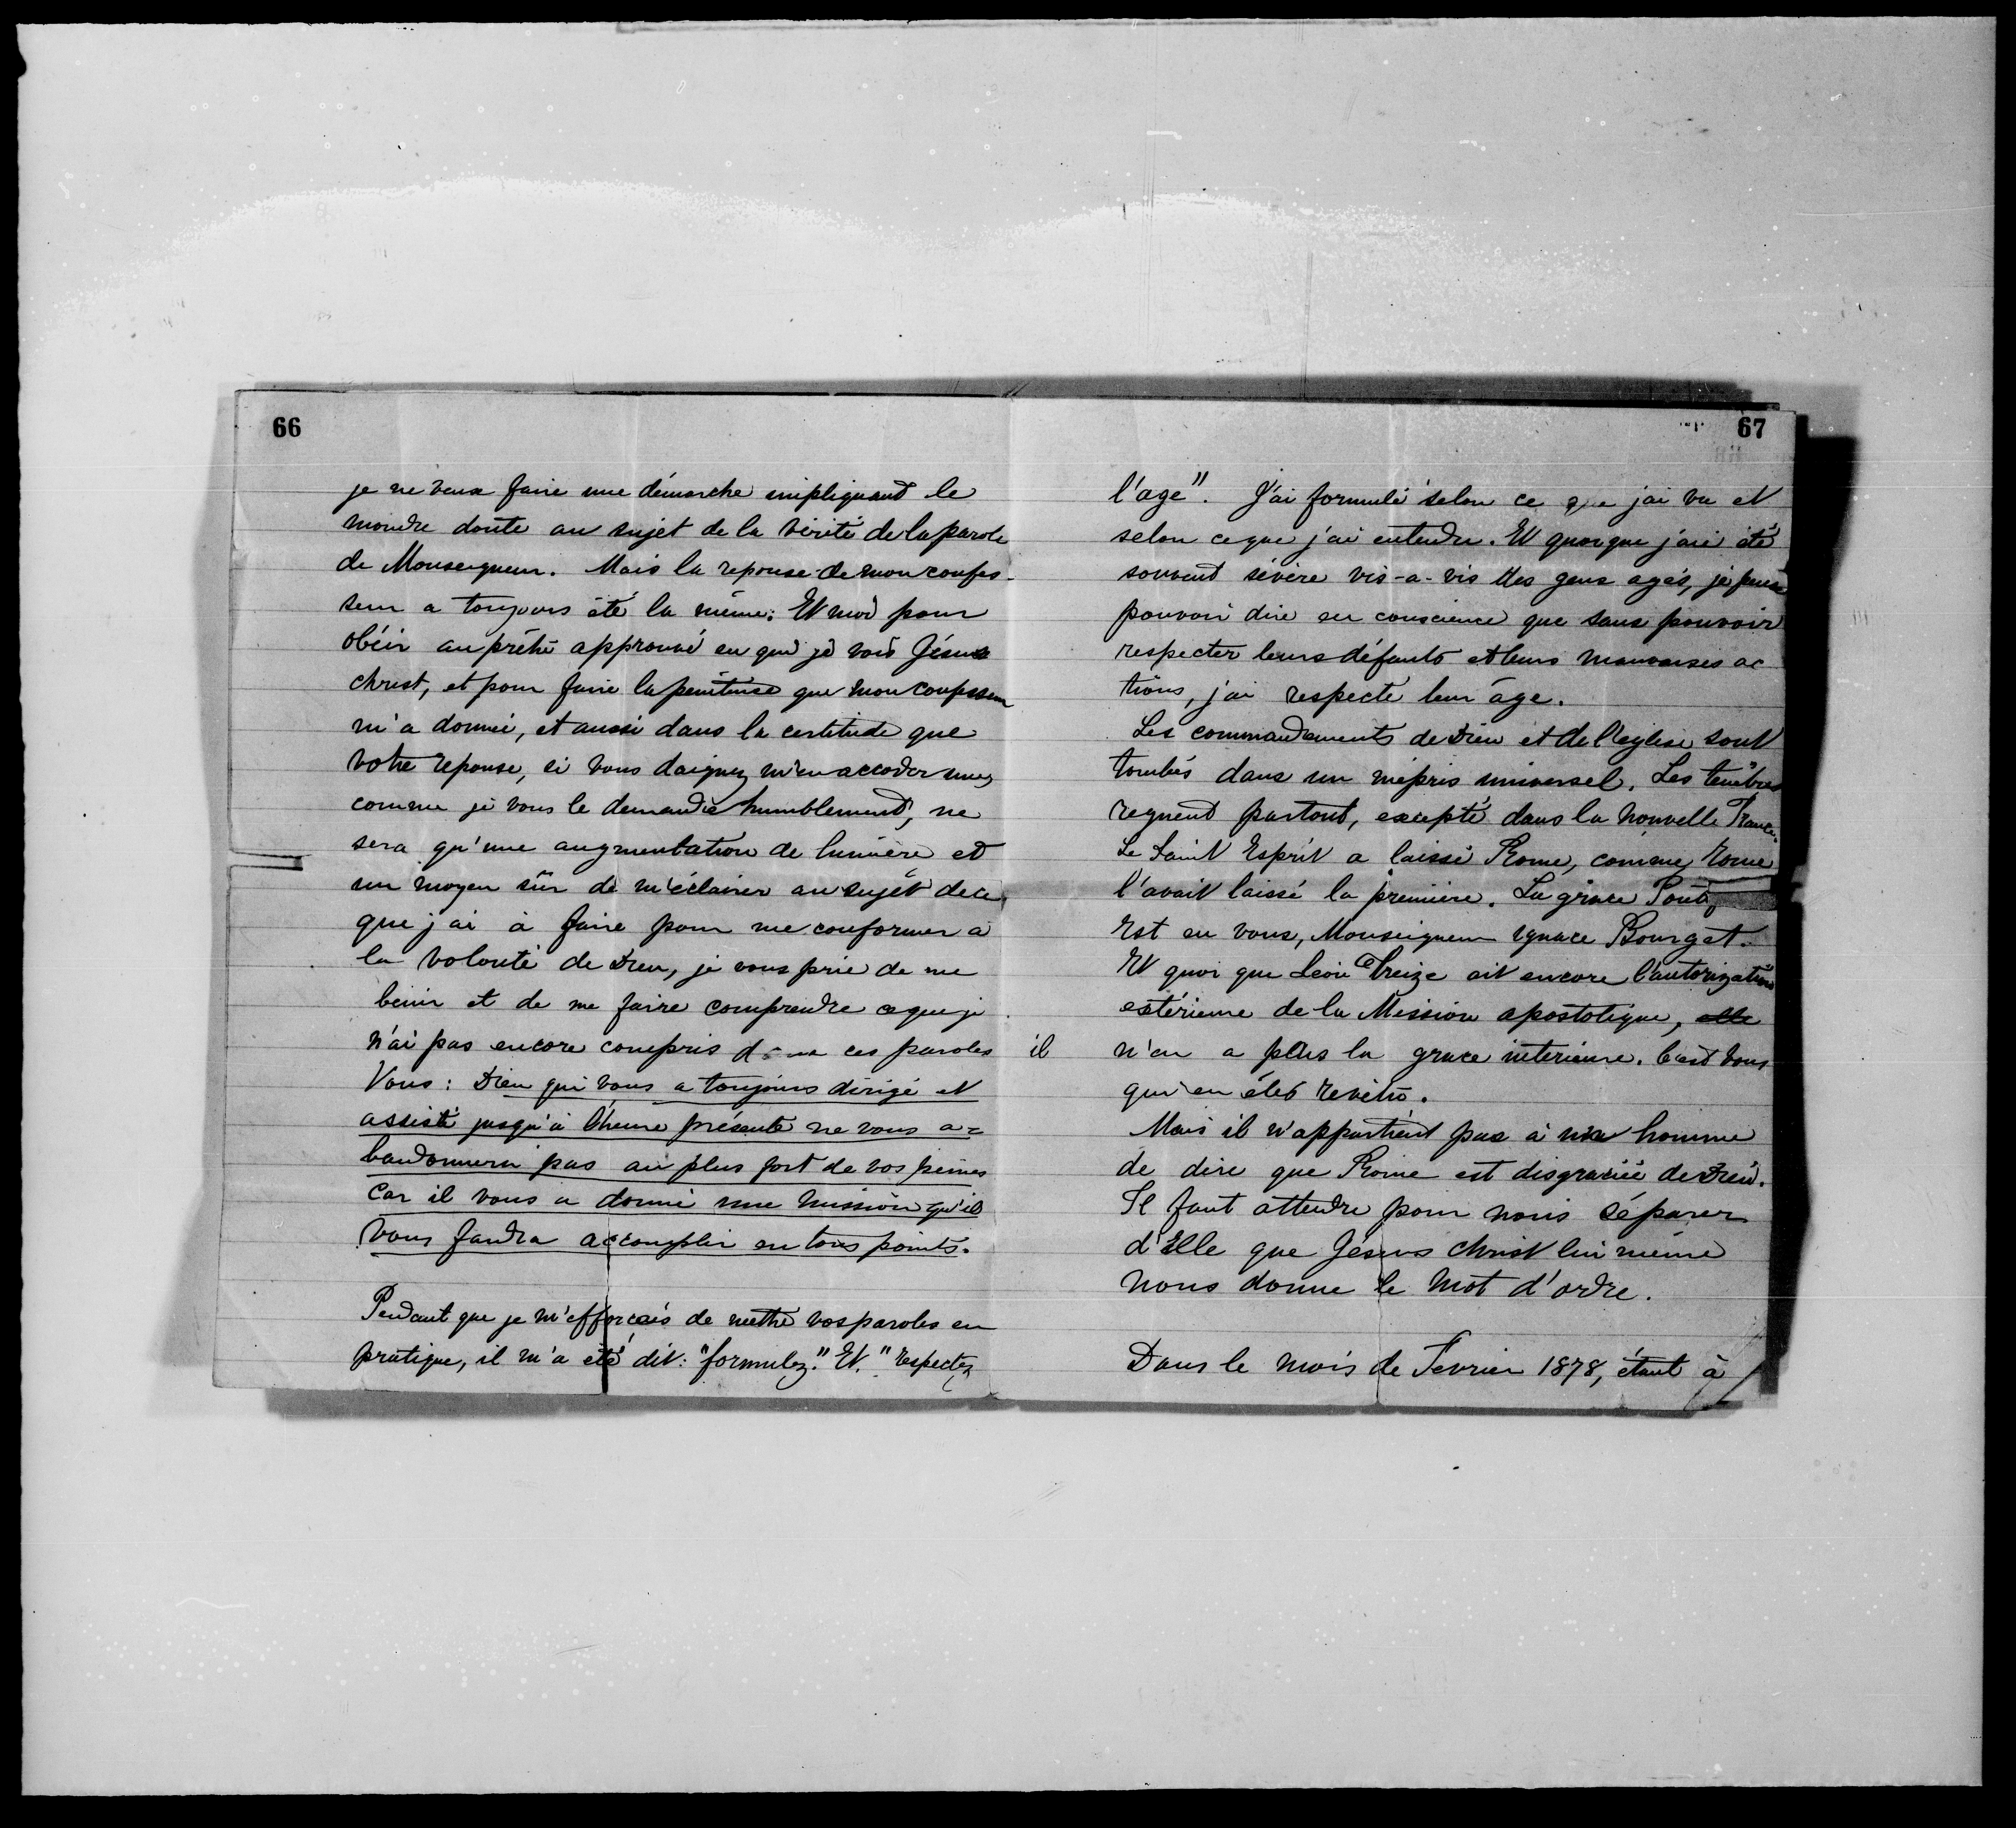 66
je ne veux faire une démarche impliquant le
moindre doute au sujet de la vérité de la parole
de Monseigneur. Mais la reponse de mon confes-
seur a toujours été la même: Et moi pour
obéir au prêtre approuvé en qui je vois Jésus
christ, et pour faire la penitense que mon confesseur
m'a donnée, et aussi dans la certitude que
votre reponse, si vous daignez m'en accorder une,
comme je vous le demande humblement, ne
sera qu'une augmentation de lumière et
un moyen sûr de m'éclairer au sujet de ce
que j'ai à faire pour me conformer à
la volonté de Dieu, je vous prie de me
benir et de me faire comprendre ce que je
n'ai pas encore compris dans ces paroles
Vous: Dieu qui vous a toujours dirigé et
assisté jusqu'à l'heure présente ne vous a=
bandonnera pas au plus fort de vos peines
Car il vous a donné une mission qu'il
vous faudra accomplir en tous points.
Pendant que je m'efforcais de mettre vos paroles en
pratique, il m'a été dit: "formulez." Et. "respectez
67
l'age". J'ai formulé selon ce que j'ai vu et
selon ce que j'ai entendu. Et quoique j'aie été
souvent sévère vis-a-vis des gens agés, je pense
pouvoir dire en conscience que sans pouvoir
respecter leurs défauts et leurs mauvaises ac
tions, j'ai respecté leur âge.
Les commandements de Dieu et de l'eglise sont
tombés dans un mépris universel. Les tenêbres
regnent partout, excepté dans la nouvelle France.
Le Saint Esprit a laissé Rome, comme Rome
l'avait laissé la première. La grâce
Est en vous, Monseigneur Ignace Bourget.
Et quoi que Léon Treize ait encore l'autorization
extérieure de la Mission apostolique, elle
il n'en a plus la grace interieure. C'est vous
qui en êtes revêtu.
Mais il n'appartient pas à un homme
de dire que Rome est disgraciée de Dieu.
Il faut attendre pour nous séparer
d'Elle que Jésus Christ lui même
nous donne le mot d'ordre.
Dans le mois de Fevrier 1878, étant à